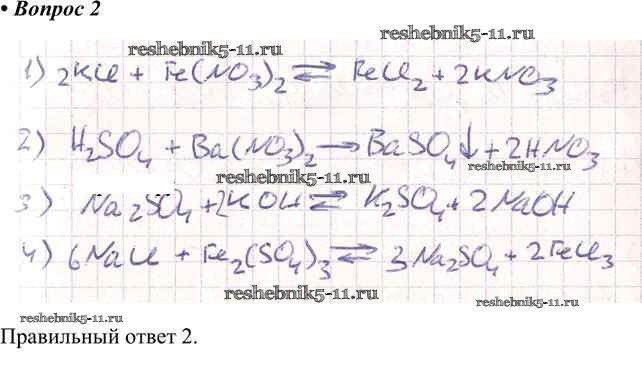 • Вопрос 2
reshebnik5-11.ru
reshebnik5-11.ru
1) 2KCl + Fe(NO3)2 ⇄ FeCl2 + 2KNO3
2) H2SO4 + Ba(NO3)2 → BaSO4↓ + 2HNO3
reshebnik5-11.ru
reshebnik5-11.ru
3) Na2SO4 + 2KOH ⇄ K2SO4 + 2NaOH
4) 6NaCl + Fe2(SO4)3 ⇄ 3Na2SO4 + 2FeCl3
reshebnik5-11.ru
reshebnik5-11.ru
reshebnik5-11.ru
Правильный ответ 2.